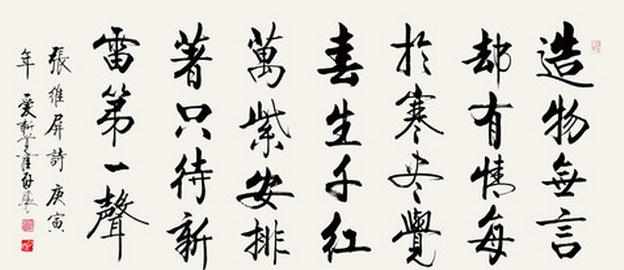 造物無言
却有情每
於寒尽覺
春生千紅
萬紫安排
著只待新
雷第一聲
張維屏詩 庚寅
年 愛新覺羅